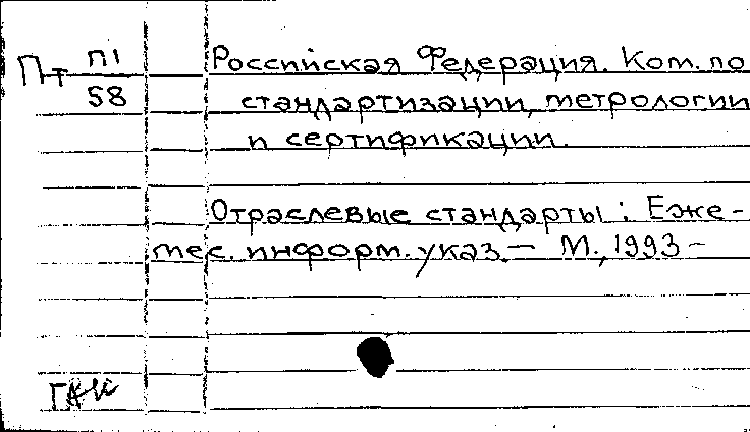 Пт П1
58
Российская Федерация. Ком. по
стандартизации, метрологии
и сертификации.
Отраслевые стандарты: Еже-
мес. информ. указ. — М., 1993 –